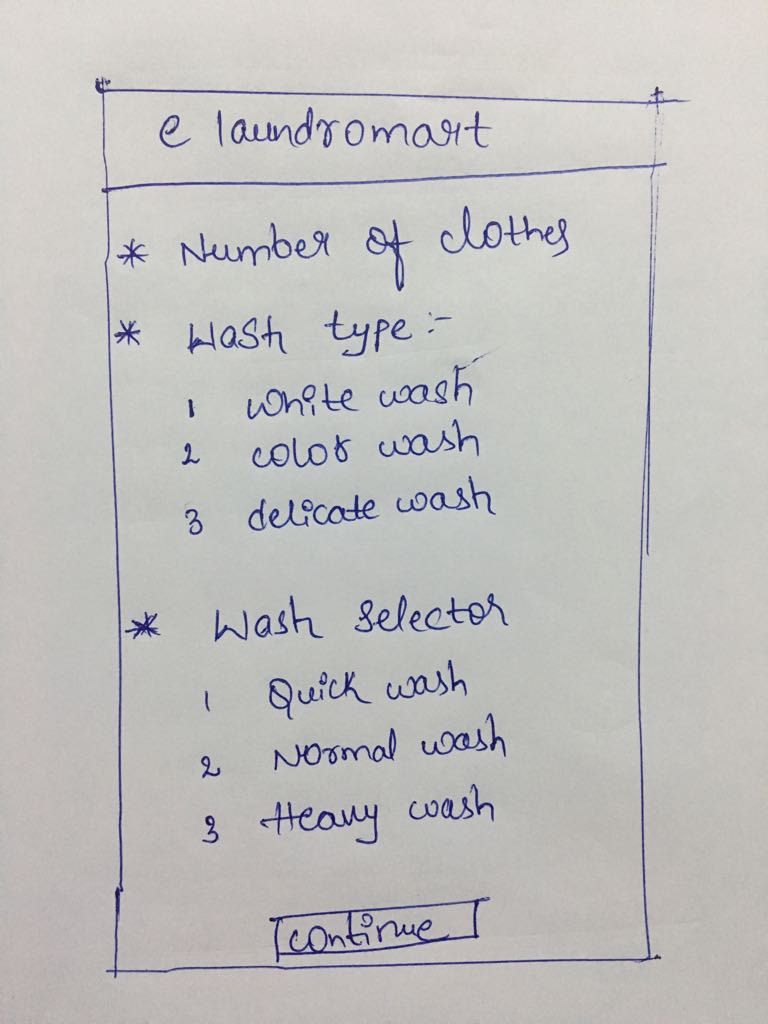 e laundromart
* Number of clothes
* Wash type :-
1 white wash
2 color wash
3 delicate wash
* Wash selector
1 Quick wash
2 Normal wash
3 Heavy wash
continue